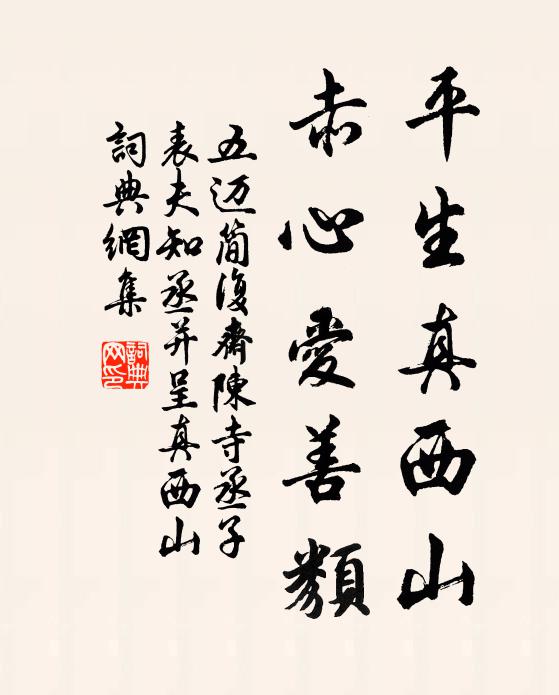 平生真西山
赤心愛善類
五迈简復齋陳寺丞子
表夫知丞并呈真西山
詞典網集
詞典
网印